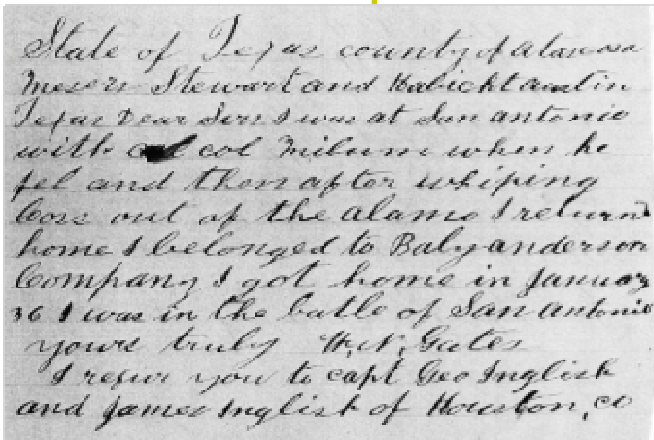 State of Texas county of
Messrs Stewart and Habicht austin
Texas Dear Sers I was at San antonio
with col Milum when he
fel and then after whiping
Coss out of the alamo I return
home I belonged to Baly anderson
Company I got home in January
36 I was in the batle of San antonio
yours truly Gates
I refur you to capt Geo Inglish
and James Inglish of Houston, co